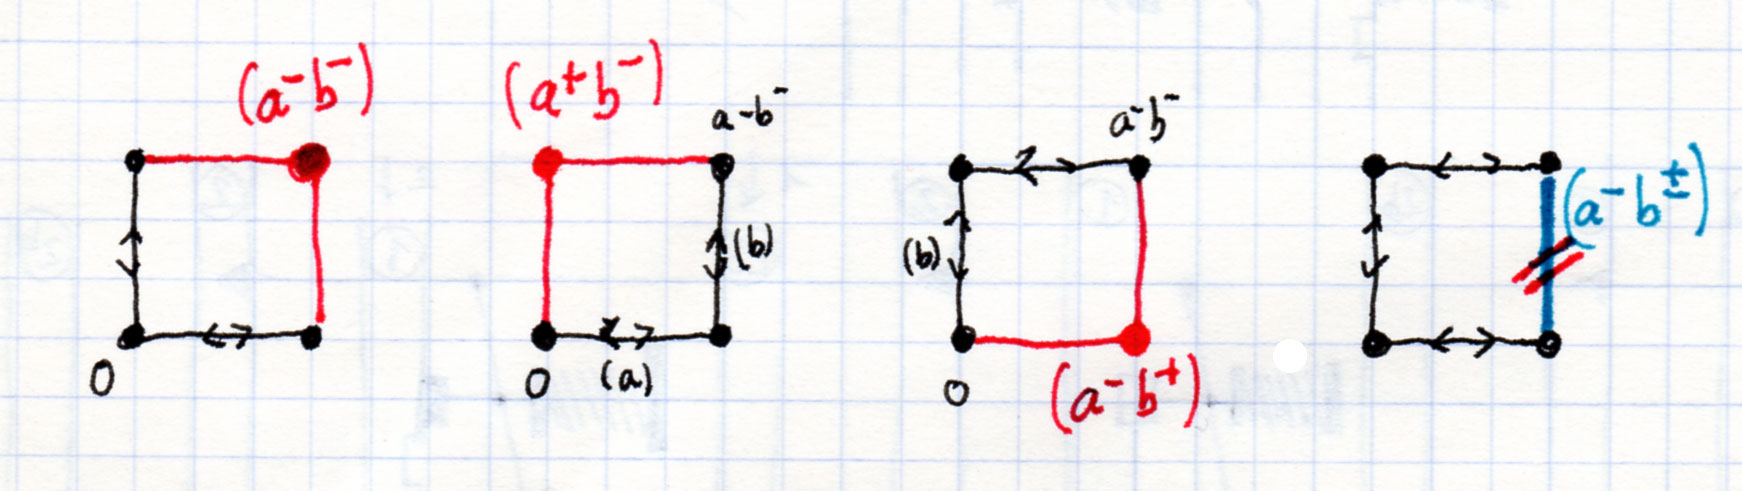 (a⁻b⁻)
0
(a⁺b⁻)
a⁻b⁻
(b)
0
(a)
a⁻b⁻
(b)
0
(a⁻b⁺)
(a⁻b^±)